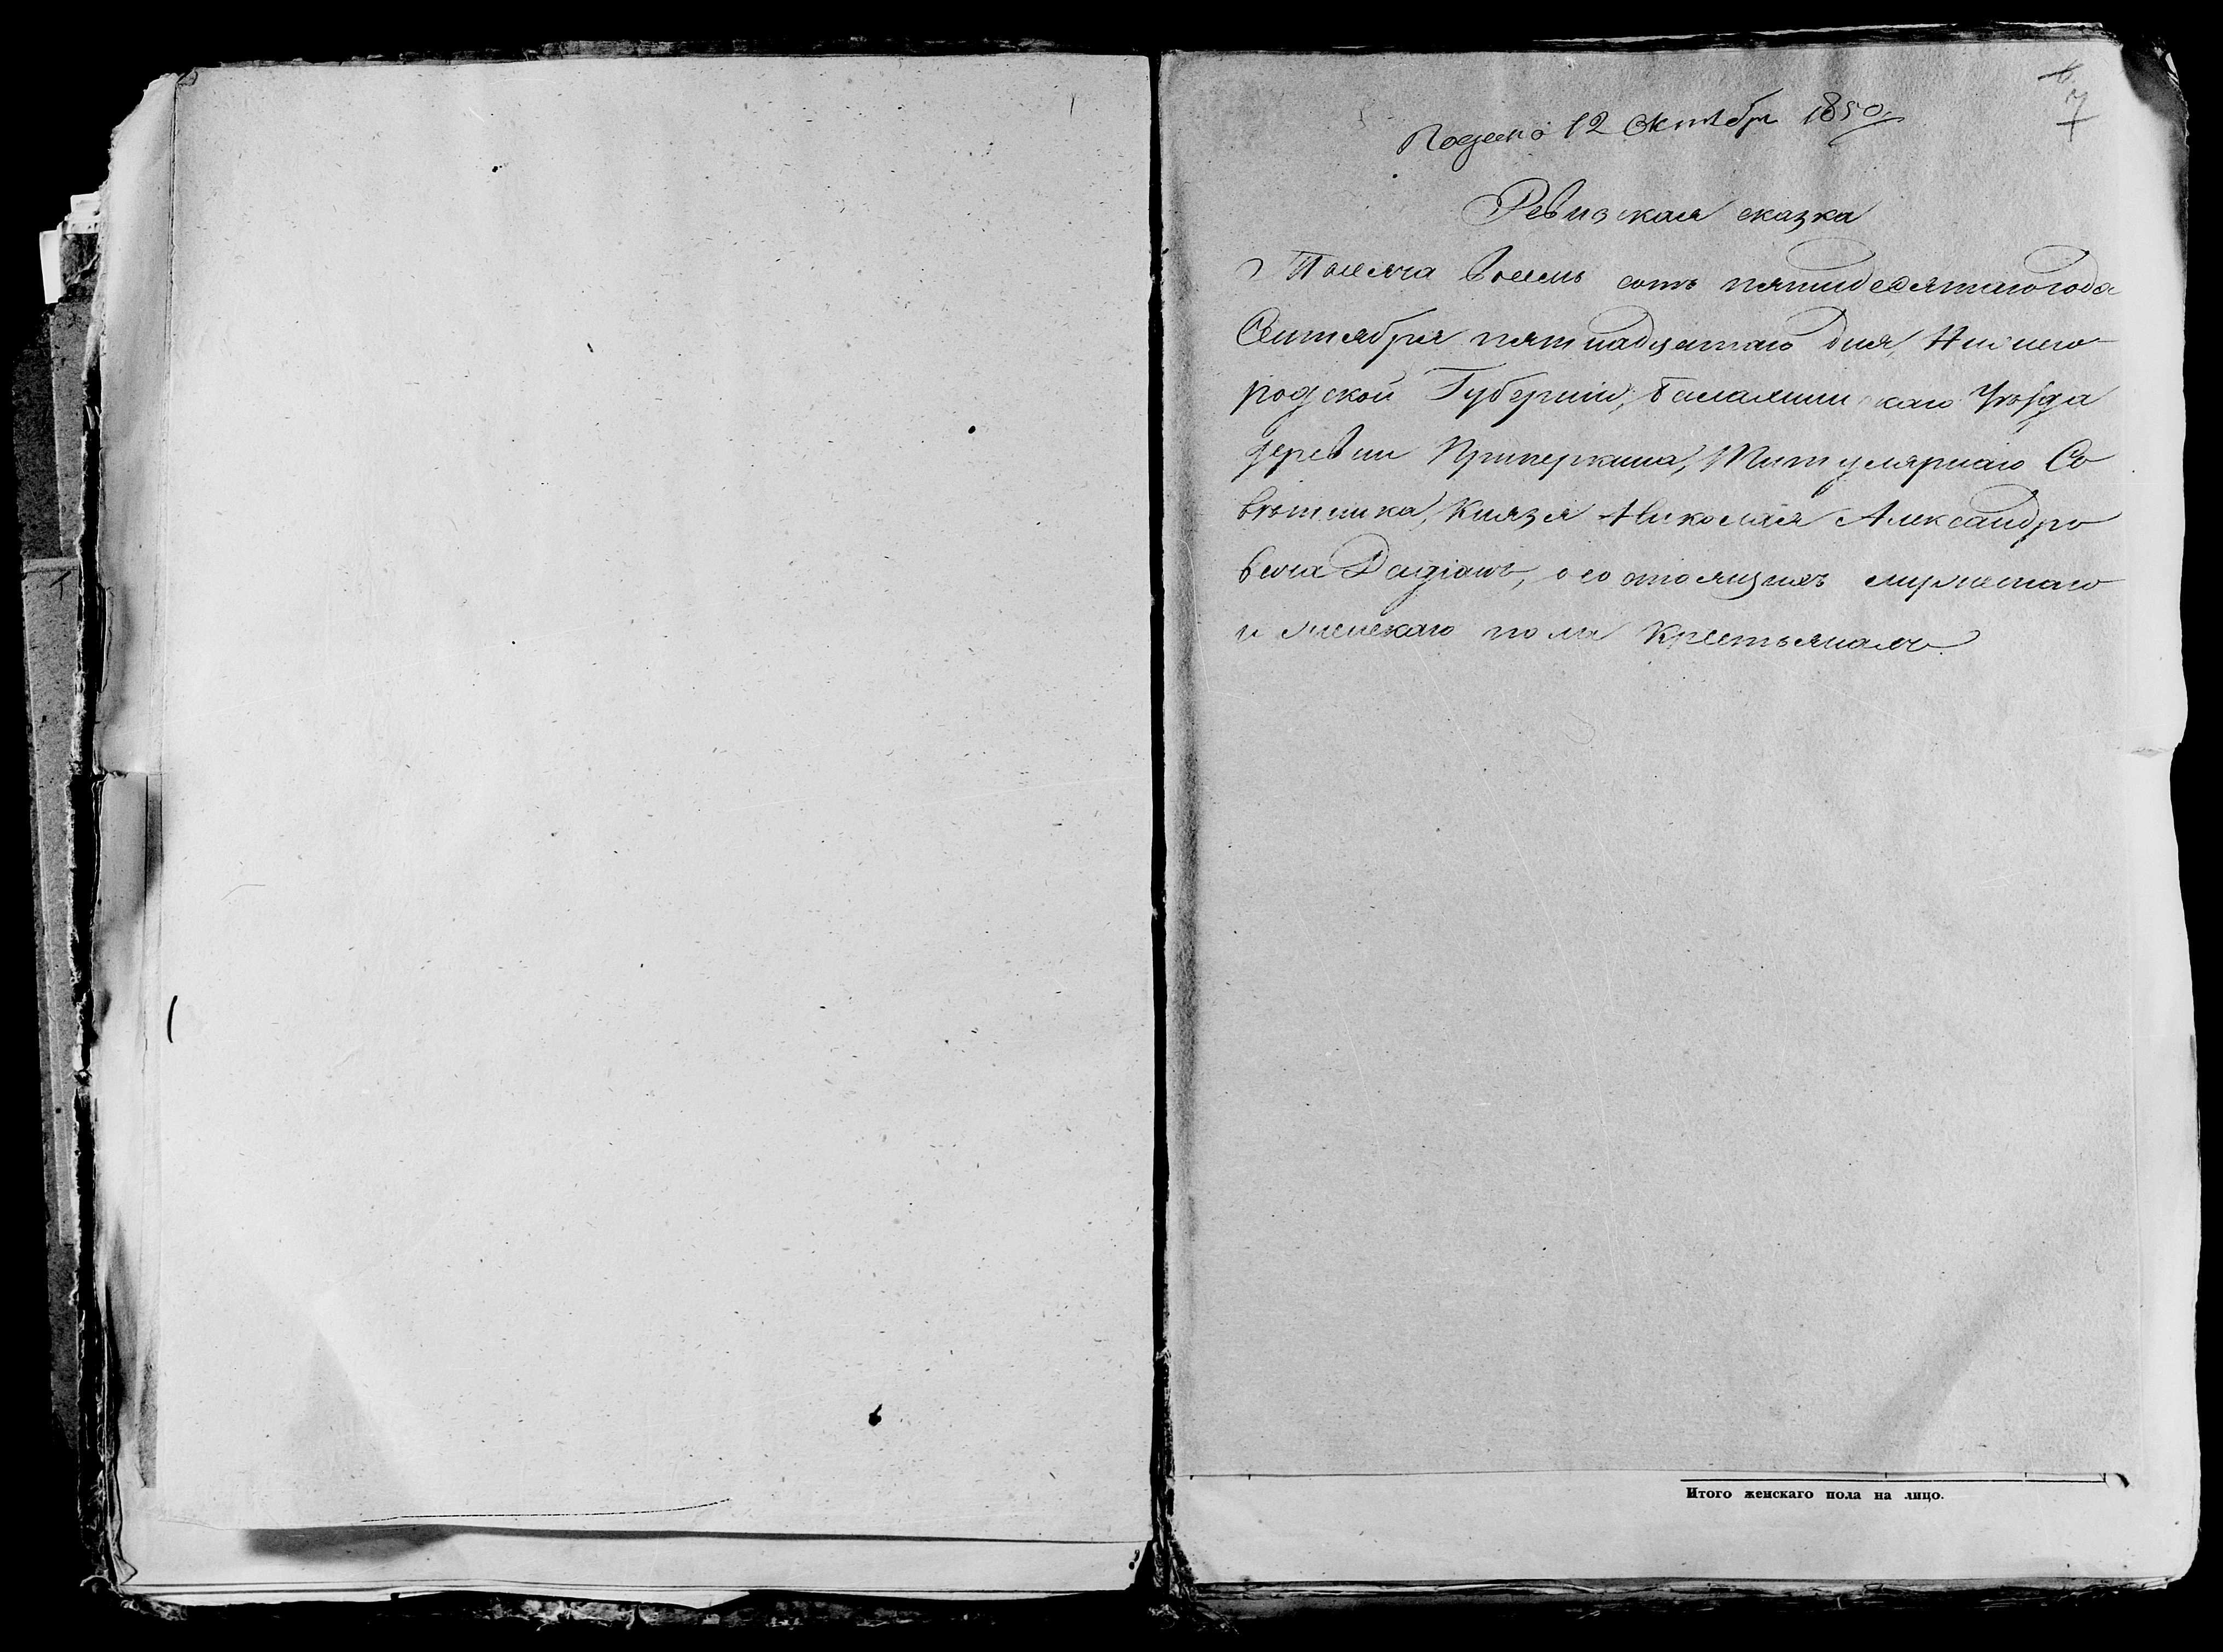 6
7
Подано 12 Октября 1850
Ревизская сказка
Тысяча восемь сотъ пятидесятаго года
Сентября пятнадцатаго дня, Нижего
родской Губерніи, Балахнинскаго Уѣзда
деревни Притеркина, Титулярнаго Со
вѣтника, Князя Николая Александро
вича Дадіанъ, о состоящихъ мужескаго
и женскаго пола крестьянахъ.
Итого женскаго пола на лицо.